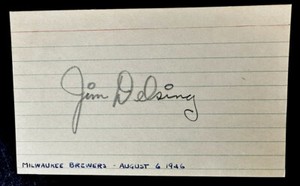 Jim Delsing
MILWAUKEE BREWERS - AUGUST 6 1946